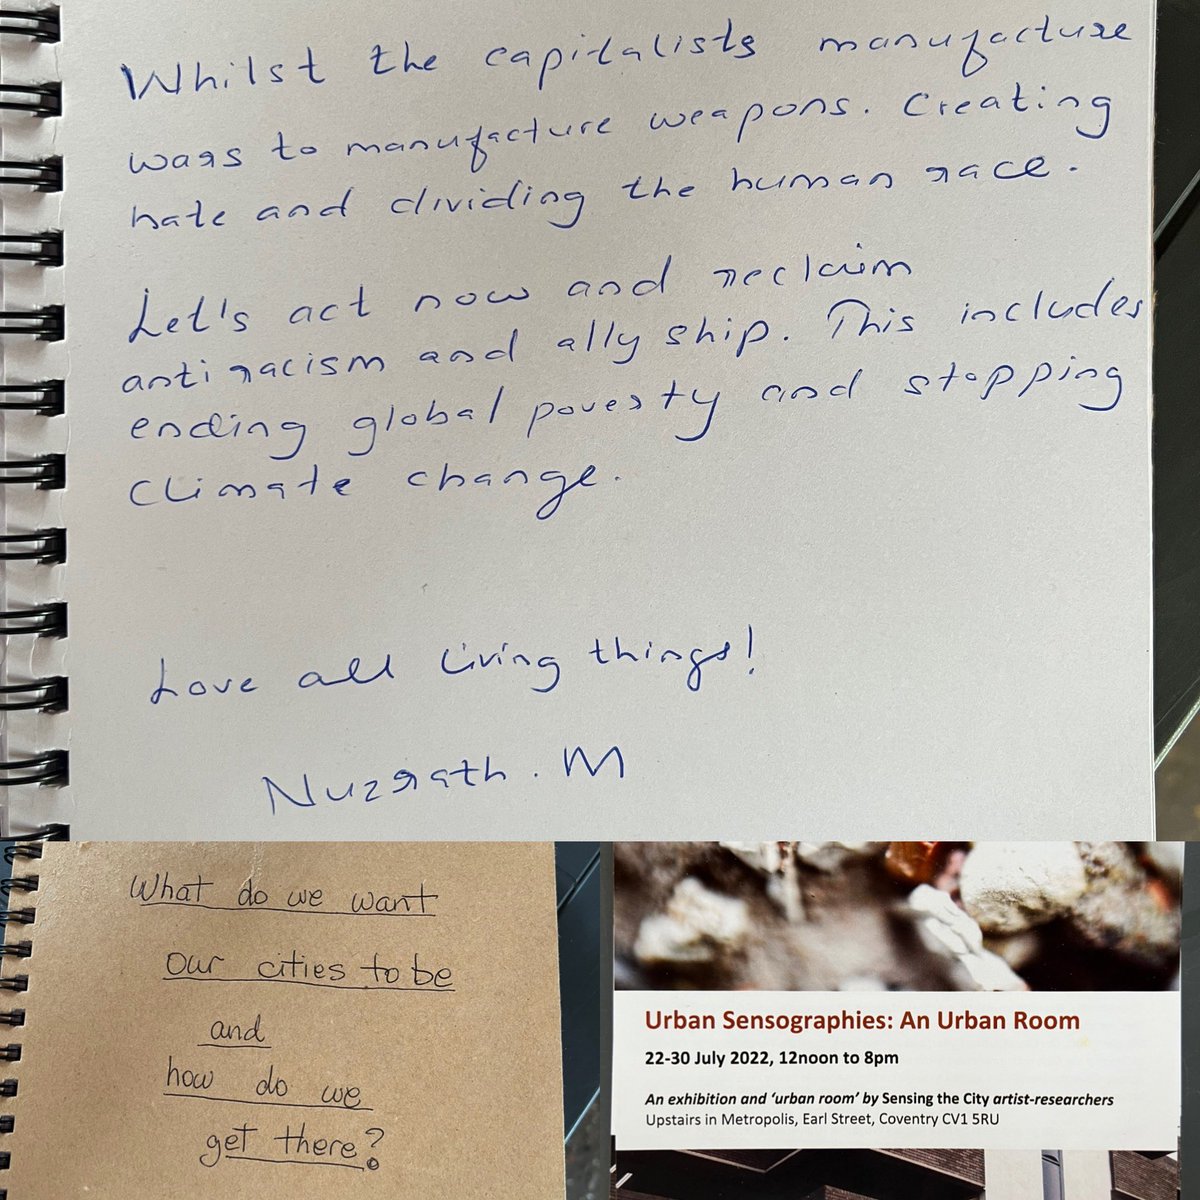 Whilst the capitalists manufacture
wars to manufacture weapons. Creating
hate and dividing the human race.
Let's act now and reclaim
anti racism and ally ship. This includes
ending global poverty and stopping
climate change.
Love all living things!
Nuzrath. M
What do we want
our cities to be
and
how do we
get there?
Urban Sensographies: An Urban Room
22-30 July 2022, 12noon to 8pm
An exhibition and ‘urban room’ by Sensing the City artist-researchers
Upstairs in Metropolis, Earl Street, Coventry CV1 5RU